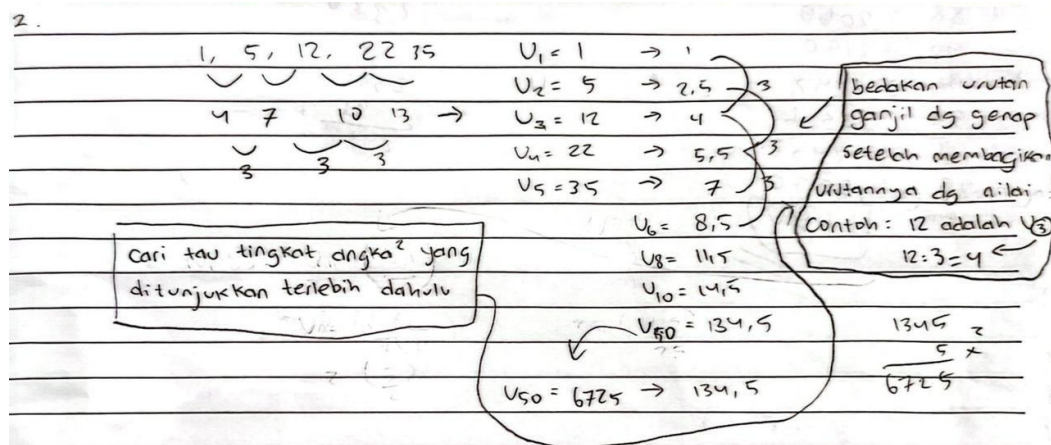 2.
1, 5, 12, 22 35
4 7 10 13 →
3 3 3
U1 = 1 → 1
U2 = 5 → 2,5
U3 = 12 → 4
U4 = 22 → 5,5
U5 = 35 → 7
U6 = 8,5
U8 = 11,5
U10 = 14,5
U50 = 134,5
U50 = 6725 → 134,5
3
3
3
bedakan urutan
ganjil dg genap
setelah membagikan
urutannya dg nilai
Contoh: 12 adalah U3
12:3=4
Cari tau tingkat angka² yang
ditunjukkan terlebih dahulu
1345
5 x
6725